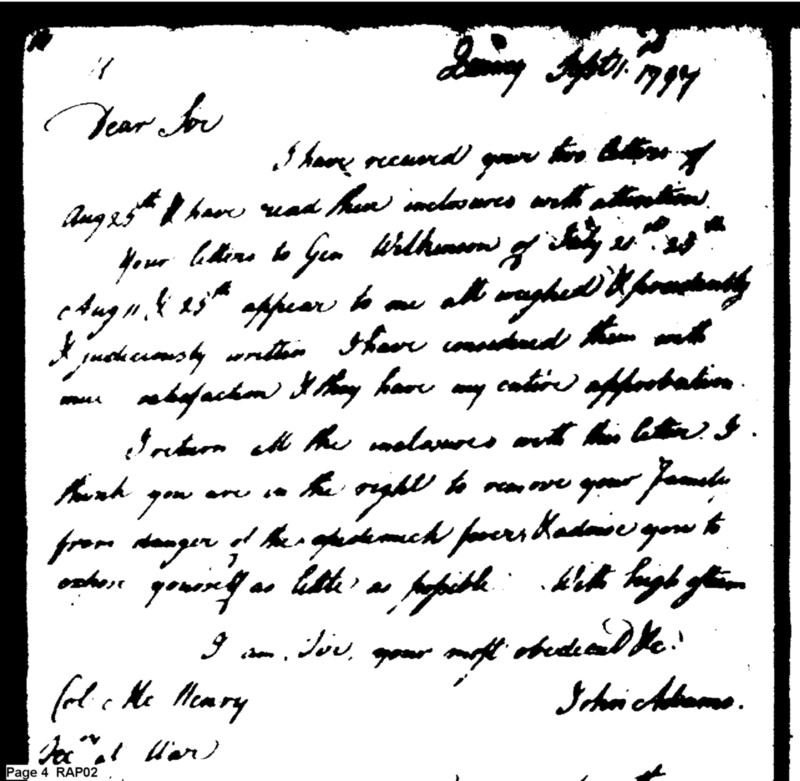 Quincy Sept 1. 1797
Dear Sir
I have received your two letters of
Aug 25th & have read their inclosures with attention.
Your letters to Gen Wilkinson of July 21st 25th
Aug 11 & 25th appear to me all weighed & prudently
& judiciously written I have considered them with
much satisfaction & they have my entire approbation.
I return all the inclosures with this letter. I
think you are in the right to remove your Family
from danger of the epidemick fever, & advise you to
expose yourself as little as possible. With high esteem
I am, Sir, your most obedient &c.
Col. Mc Henry
John Adams.
Secry at War
Page 4 RAP02